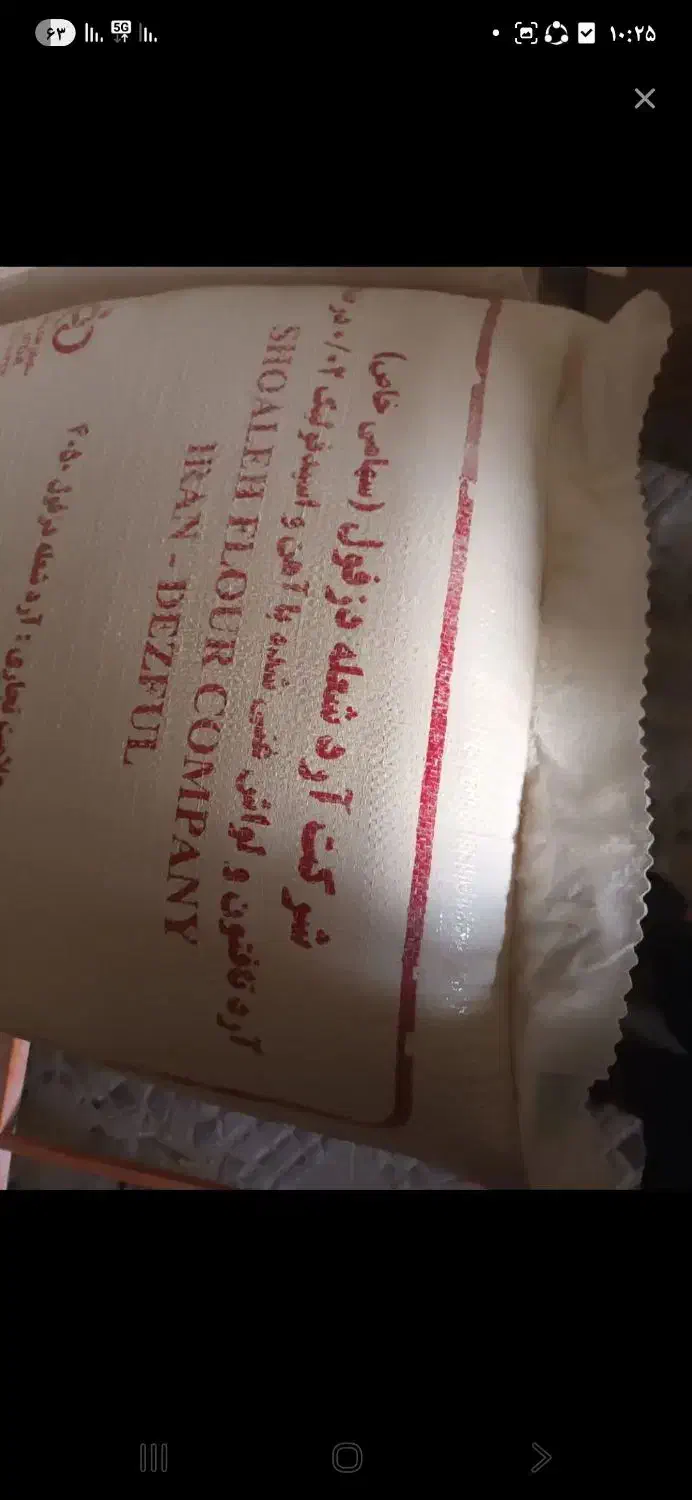 ۶۳
5G
۱۰:۲۵
شرکت آرد شعله دزفول (سهامی خاص)
آرد تافتون و لواش غنی شده با آهن و اسیدفولیک
SHOALEH FLOUR COMPANY
IRAN - DEZFUL
آرد شعله دزفول